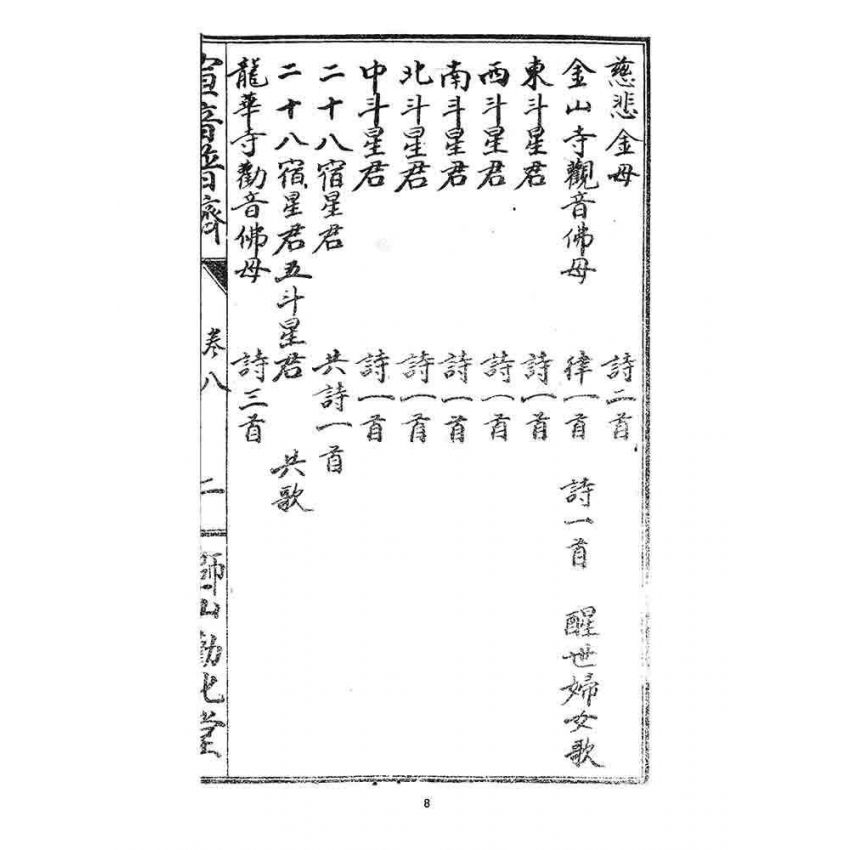 慈悲金母 詩二首
金山寺觀音佛母 律一首 詩一首 醒世婦女歌
東斗星君 詩一首
西斗星君 詩一首
南斗星君 詩一首
北斗星君 詩一首
中斗星君 詩一首
二十八宿星君 共詩一首
二十八宿星君五斗星君 共歌
龍華寺勸音佛母 詩三首
宣音普濟 卷八 二 獅山勸化堂
8